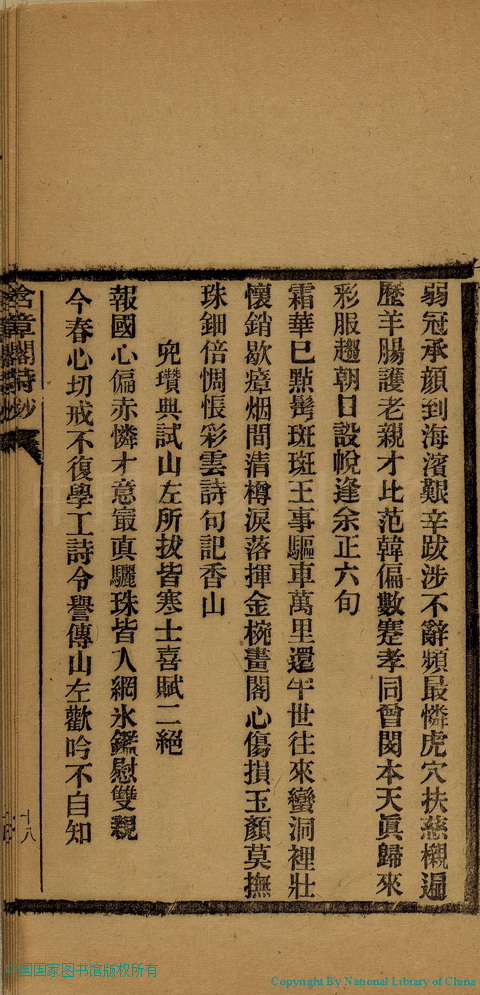 弱冠承顏到海濱艱辛跋涉不辭頻最憐虎穴扶慈櫬遍
歷羊腸護老親才比范韓偏數蹇孝同曾閔本天眞歸來
彩服趨朝日設帨逢余正六旬
霜華巳點鬓斑斑王事驅車萬里還半世往來蠻洞裡壯
懷銷歇瘴烟間清樽淚落揮金椀畫閣心傷損玉顏莫撫
珠鈿倍惆悵彩雲詩句記香山
兜瓚典試山左所拔皆寒士喜賦二絕
報國心偏赤憐才意寂眞驪珠皆入網氷鑑慰雙親
今春心切戒不復學工詩令譽傳山左歡吟不自知
含章閣詩鈔
十八
中国国家图书馆版权所有
Copyright By National Library of China